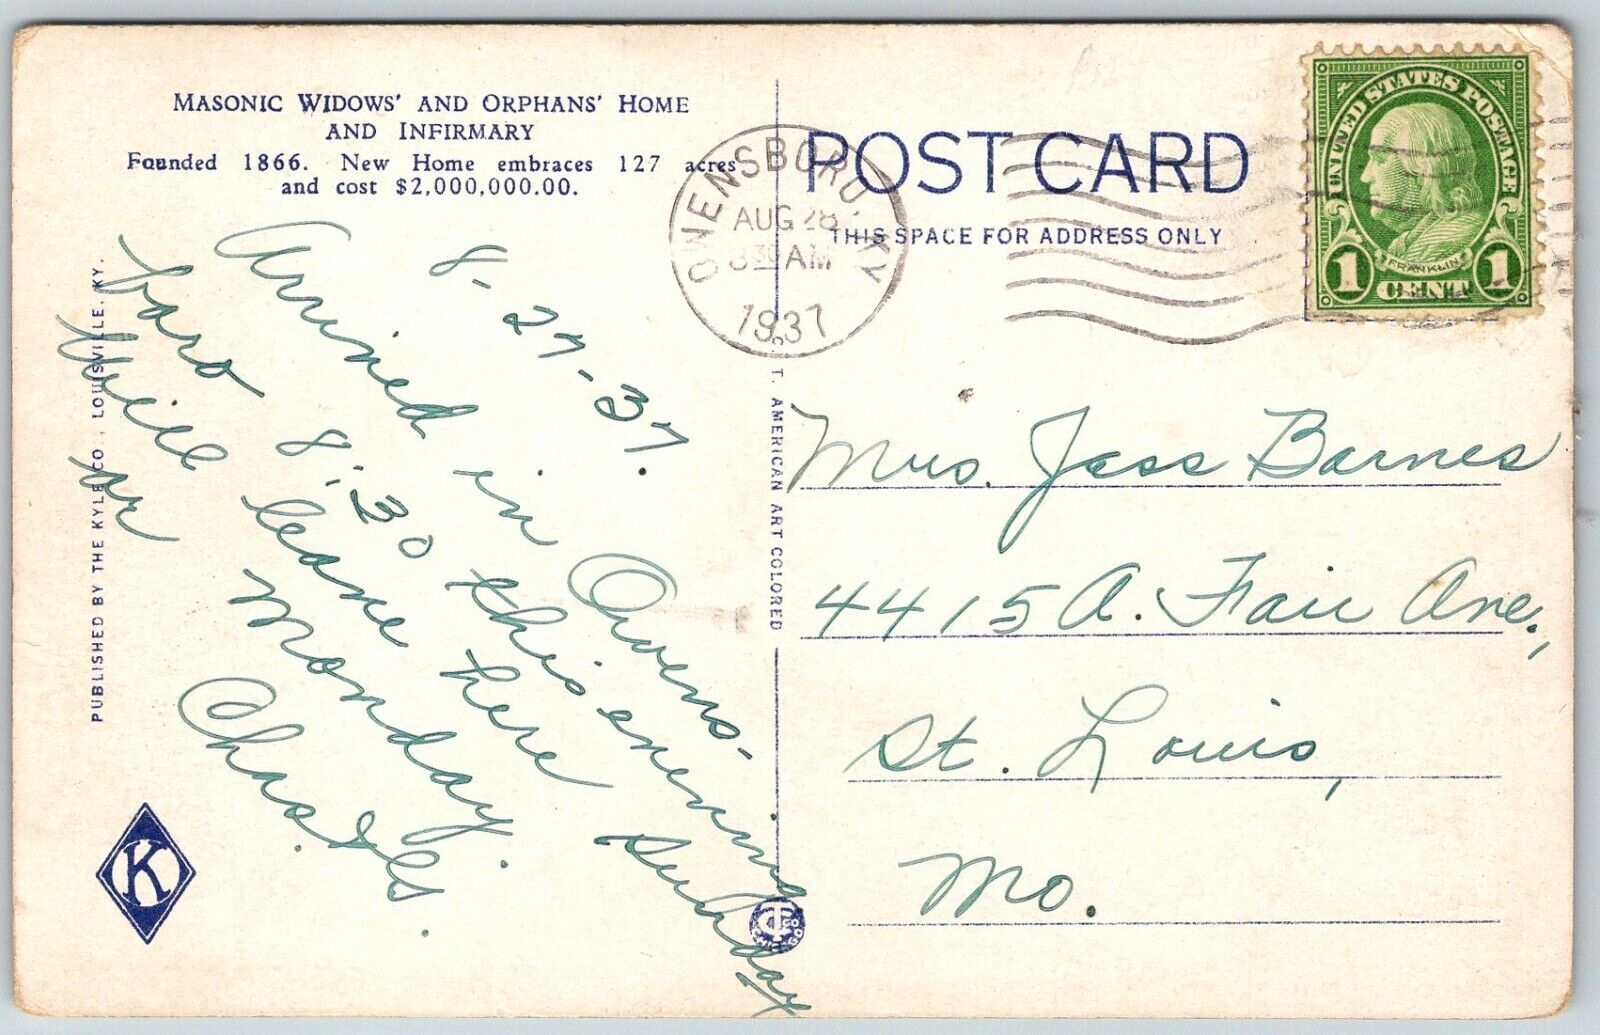 MASONIC WIDOWS' AND ORPHANS' HOME
AND INFIRMARY
Founded 1866. New Home embraces 127 acres
and cost $2,000,000.00.
8-27-37.
Arrived in Owens-
boro 8:30 this evening
Will leave here Sunday
or Monday.
Chas. & Gs.
PUBLISHED BY THE KYLE CO., LOUISVILLE, KY.
K
C. T. AMERICAN ART COLORED
OWENSBORO KY
AUG 28
30 AM
1937
POST CARD
THIS SPACE FOR ADDRESS ONLY
UNITED STATES POSTAGE
FRANKLIN
1 CENT 1
Mrs. Jess Barnes
4415 A. Fair Ave.,
St. Louis,
Mo.
CHICAGO